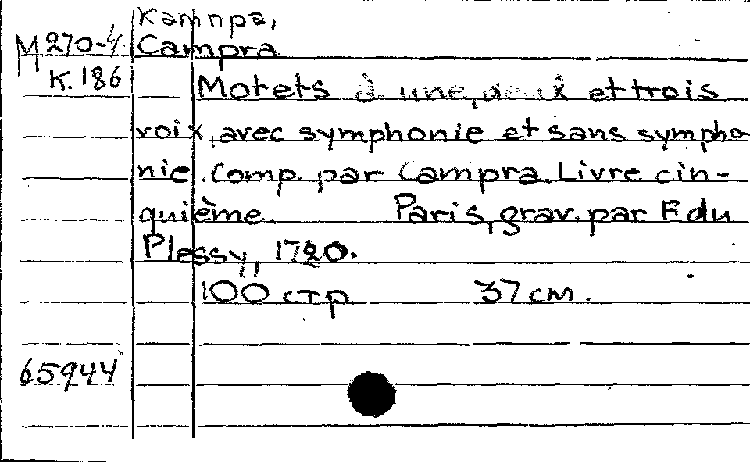 Кампра,
M 270-4 Campra
K.186 Motets à une, deux et trois
voix, avec symphonie et sans sympho
nie. Comp. par Campra. Livre cin-
quième. Paris, grav. par F. du
Plessy, 1720.
100 стр 37 см.
65944